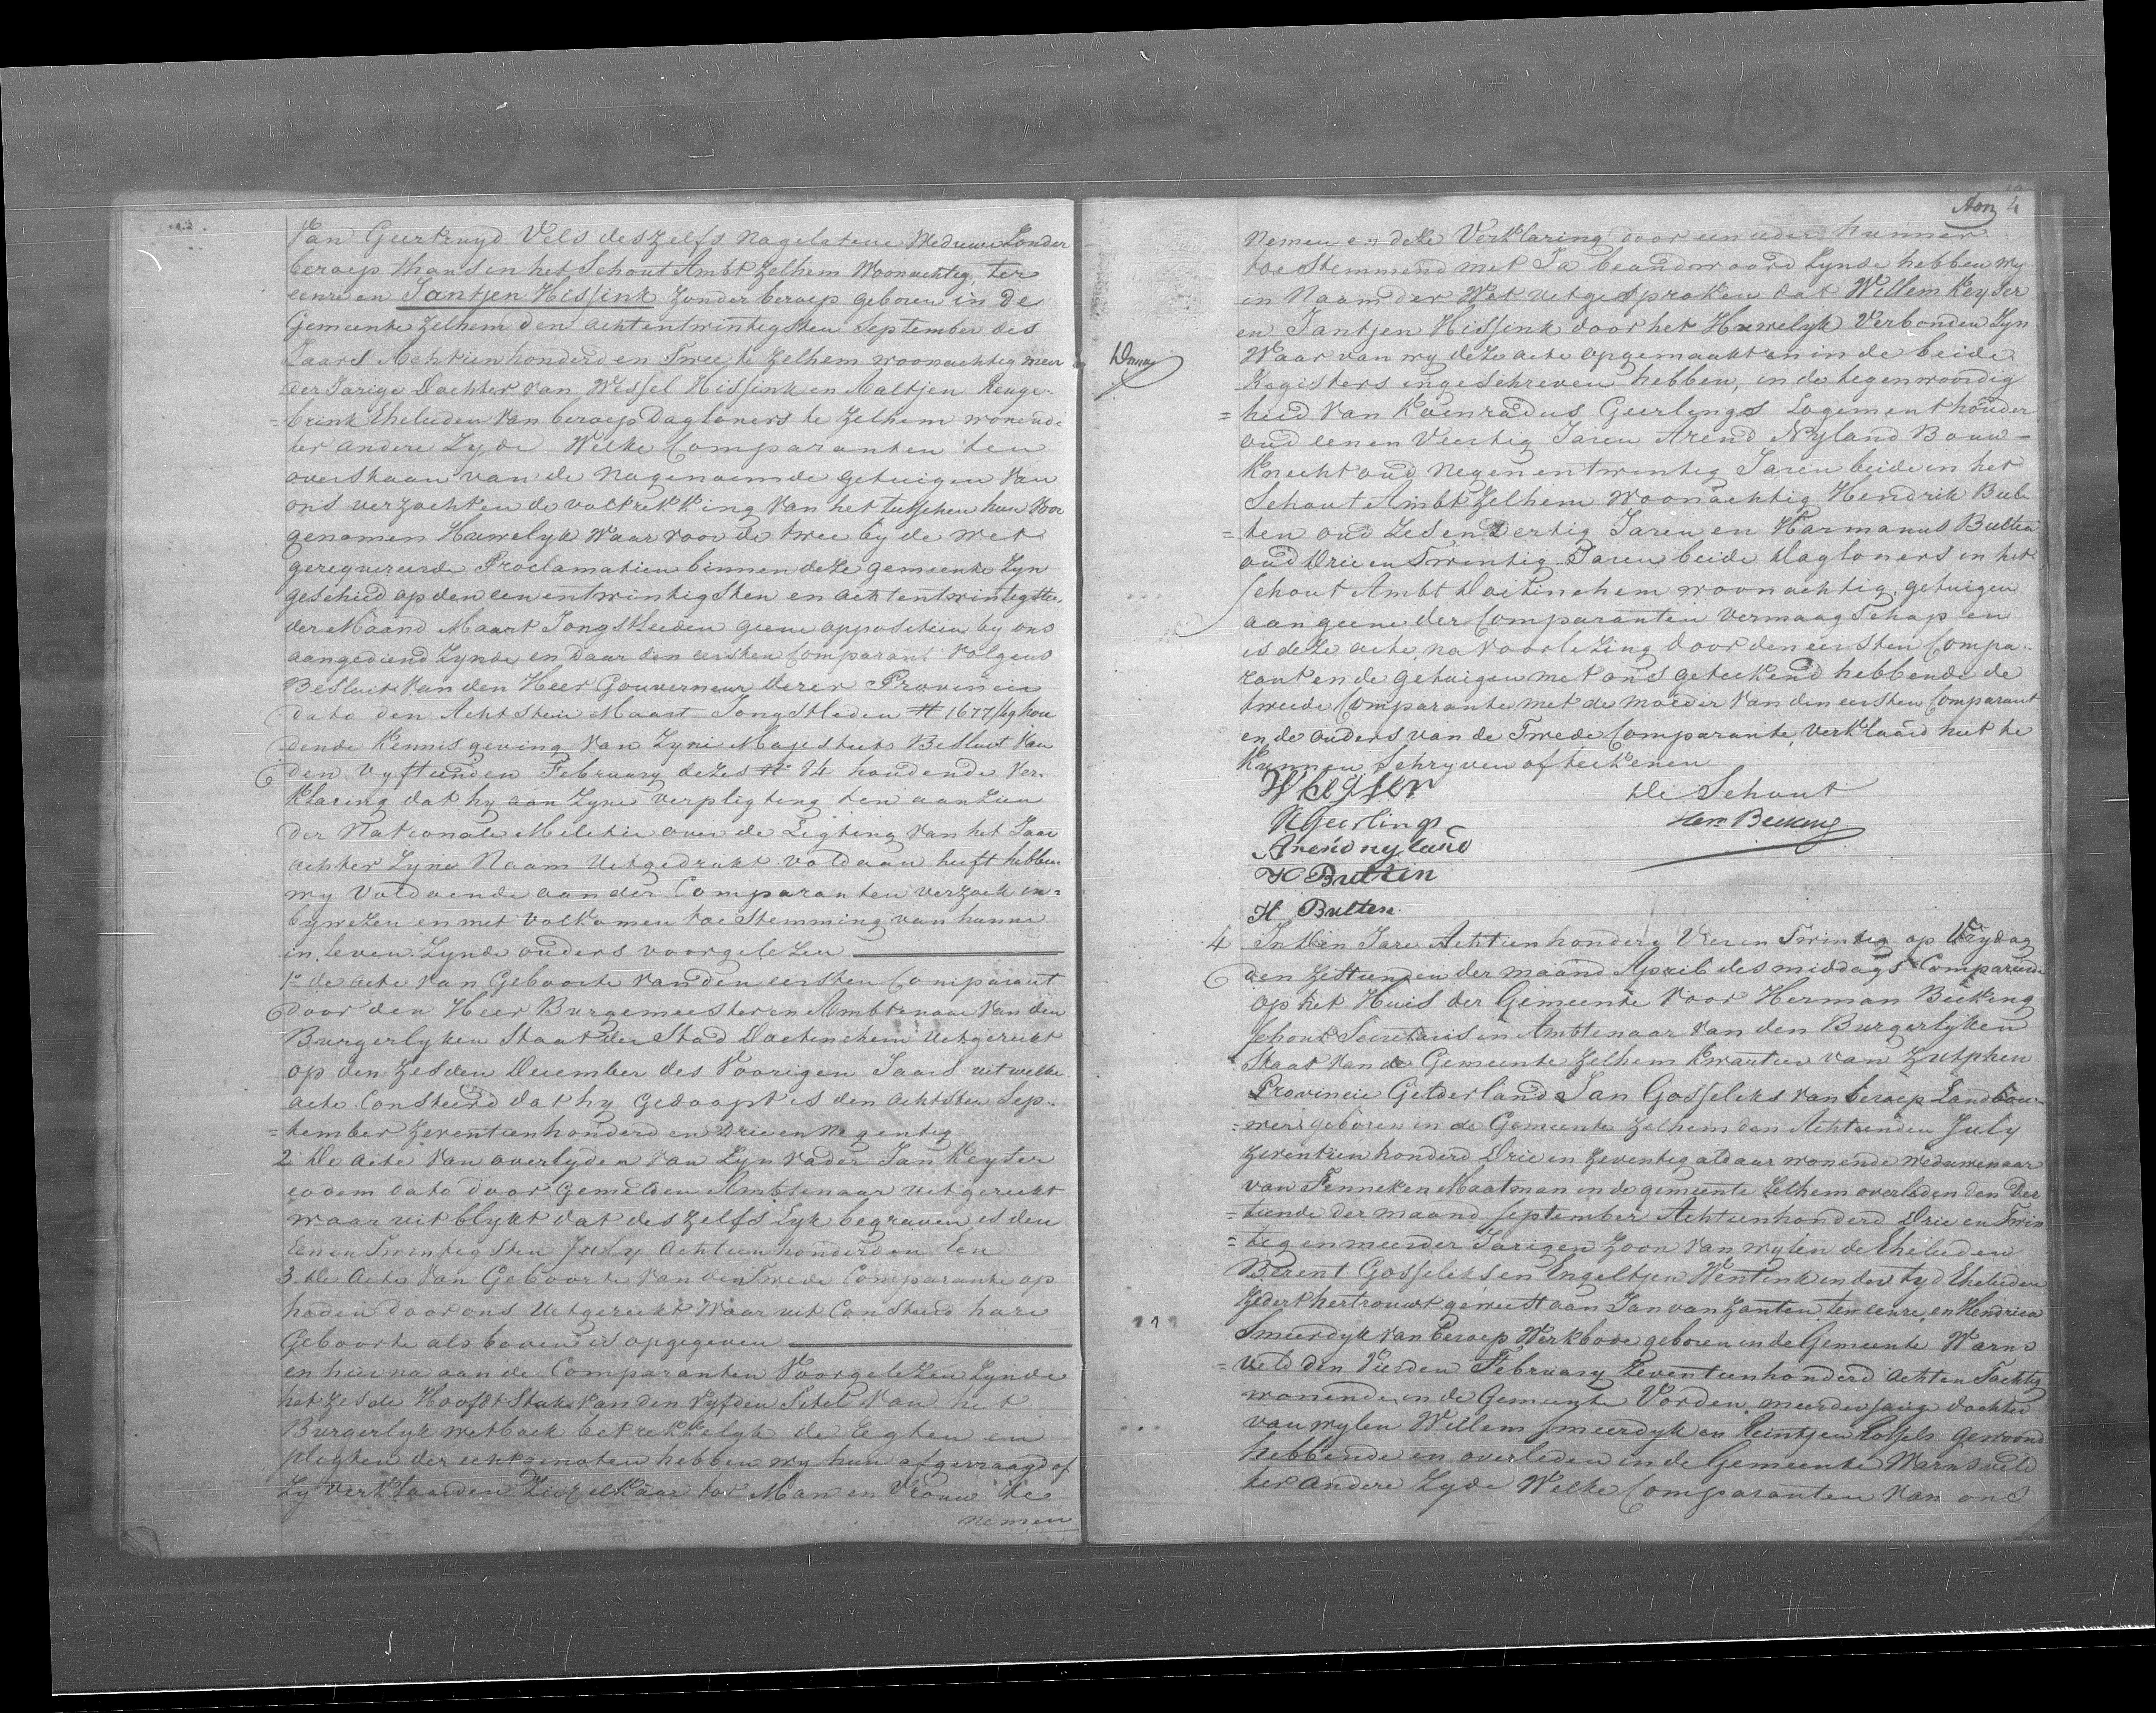 Van Geertruyd Vels deszelfs nagelatene Weduwe Zonder
beroep thans in het Schout Ambt Zelhem Woonachtig, ter
eenre en Jantjen Hissink Zonder beroep geboren in de
Gemeente Zelhem den achtentwintigsten September des
Jaars Achttienhonderd en Twee te Zelhem woonachtig meer
der Jarige Dochter van Wessel Hissink en Aaltjen Renge-
=brink Ehelieden Van beroep Dagloners te Zelhem wonende
ter andere Zyde Welke Comparanten ten
overstaan van de nagenoemde getuigen Van
ons verzochten de voltrekking Van het tusschen hun Voor
genomen Huwelyk Waar voor de twee by de wet
gerequireerde Proclamatien binnen deze gemeente Zyn
geschied op den eenentwintigsten en achtentwintigsten
der Maand Maart Jongstleeden geene oppositien by ons
aangediend Zynde en daar den eersten Comparant Volgens
Besluit Van den Heer Gouverneur derer Provincie
dato den Achtsten Maart Jongstleden N 1677/69 hou
dende Kennisgeving Van Zyne Majesteits Besluit Van
den Vyftienden February dezes N° 84 houdende Ver-
klaring dat hy aan Zyne verpligting ten aanzien
der Nationale Militie over de Ligting Van het Jaar
achter Zyne Naam Uitgedrukt voldaan heeft hebben
wy Voldoende aan der Comparanten verzoek in-
bywezen en met Volkomen toestemming van hunne
in Leven Zynde ouders voorgelezen
1° de acte Van Geboorte van den eersten Comparant
door den Heer Burgemeester en Ambtenaar Van den
Burgerlyken Staat der Stad Doetinchem Uitgereikt
op den Zesden December des Voorigen Jaars uit welke
acte Consteerd dat hy Gedoopt is den achtsten Sep-
=tember Zeventienhonderd en Drie en Negentig
2 De acte Van overlyden Van Zyn Vader Jan Keyser
eodem dato door Gemelden Ambtenaar uitgereikt
waar uit blykt dat deszelfs Lyk begraven is den
Eenen Twintigsten July Achttienhonderd en Een
3 de Acte Van Geboorte Van den Twede Comparante op
heden door ons Uitgereikt Waar uit Consteerd hare
Geboorte als boven is opgegeven
en hierna aan de Comparanten Voorgelezen Zynde
het Zesde Hoofdstuk Van den Vyfden Titel Van het
Burgerlyk wetboek betrekkelyk de Regten en
pligten der echtgenoten hebben wy hun afgevraagd of
Zy verklaarden Zich elkaar tot Man en Vrouw te
nemen
4
nemen en deze Verklaring door een ieder hunner
toe Stemmend met Ja beandwoord Zynde hebben wy
in Naam der Wet uitgesproken dat Willem Keyser
en Jantjen Hissink door het Huwelyk Verbonden Zyn
Waar van wy deze acte opgemaakt en in de beide
Registers ingeschreven hebben, in de tegenwoordig
=heid Van Koenradus Geerlings Logement houder
oud eenen Veertig Jaren Arend Nyland Bouw-
Knecht oud Negenentwintig Jaren beide in het
Schout Ambt Zelhem Woonachtig Hendrik Bul
=ten oud Zes en Dertig Jaren en Harmanus Bulten
oud Drie en Twintig Jaren beide Dagloners in het
Schout Ambt Doetinchem woonachtig, getuigen
aan geene der Comparanten Vermaagschap en
is deze acte na Voorlezing door den eersten Compa-
rant en de getuigen met ons geteekend hebbende de
tweede Comparante met de moeder Van den eersten Comparant
en de ouders van de Twede Comparante, Verklaard niet te
kunnen Schryven of teekenen
W Keyser
De Schout
K Geerlings
Her Beeking
Arend nyland
H Bulten
H Bulten
4 In den Jare Achttienhonderd Vier en Twintig op Vrydag
den Zestienden der maand April des middags Compareerde
op het Huis der Gemeente Voor Herman Beeking
Schout Secretaris en Ambtenaar Van den Burgerlyken
Staat Van de Gemeente Zelhem Kwartier van Zutphen
Provincie Gelderland Jan Gosseliks Van beroep Landbou-
=wer geboren in de Gemeente Zelhem den Achttienden July
Zeventien honderd Drie en Zeventig aldaar wonende weduwenaar
van Fenneken Maatman in de gemeente Zelhem overleden den Der
=tiende der maand September Achttienhonderd Drie en Twin
=tig en meerder Jarigen Zoon Van wylen de Ehelieden
Berent Gosseliks en Engeltjen Wentink in der tyd Ehelieden
Zedert hertrouwt geweest aan Jan van Zanten ten eenre, en Hendrica
Smeerdyk Van beroep Werkbode geboren in de Gemeente Warns
=veld den Vierden February Zeventienhonderd acht en Tachtig
wonende in de Gemeente Vorden meerderjarige dochter
van wylen Willem Smeerdyk en Reintjen Rossels gewoond
hebbende en overleden in de Gemeente Warnsveld
ter andere Zyde Welke Comparanten Van ons